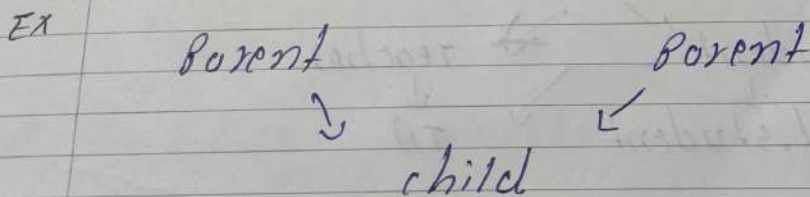 EX
Parent Parent
child